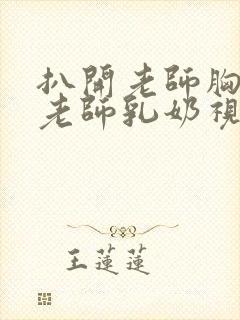 扒開老師胸
老師乳奶視
王蓮蓮